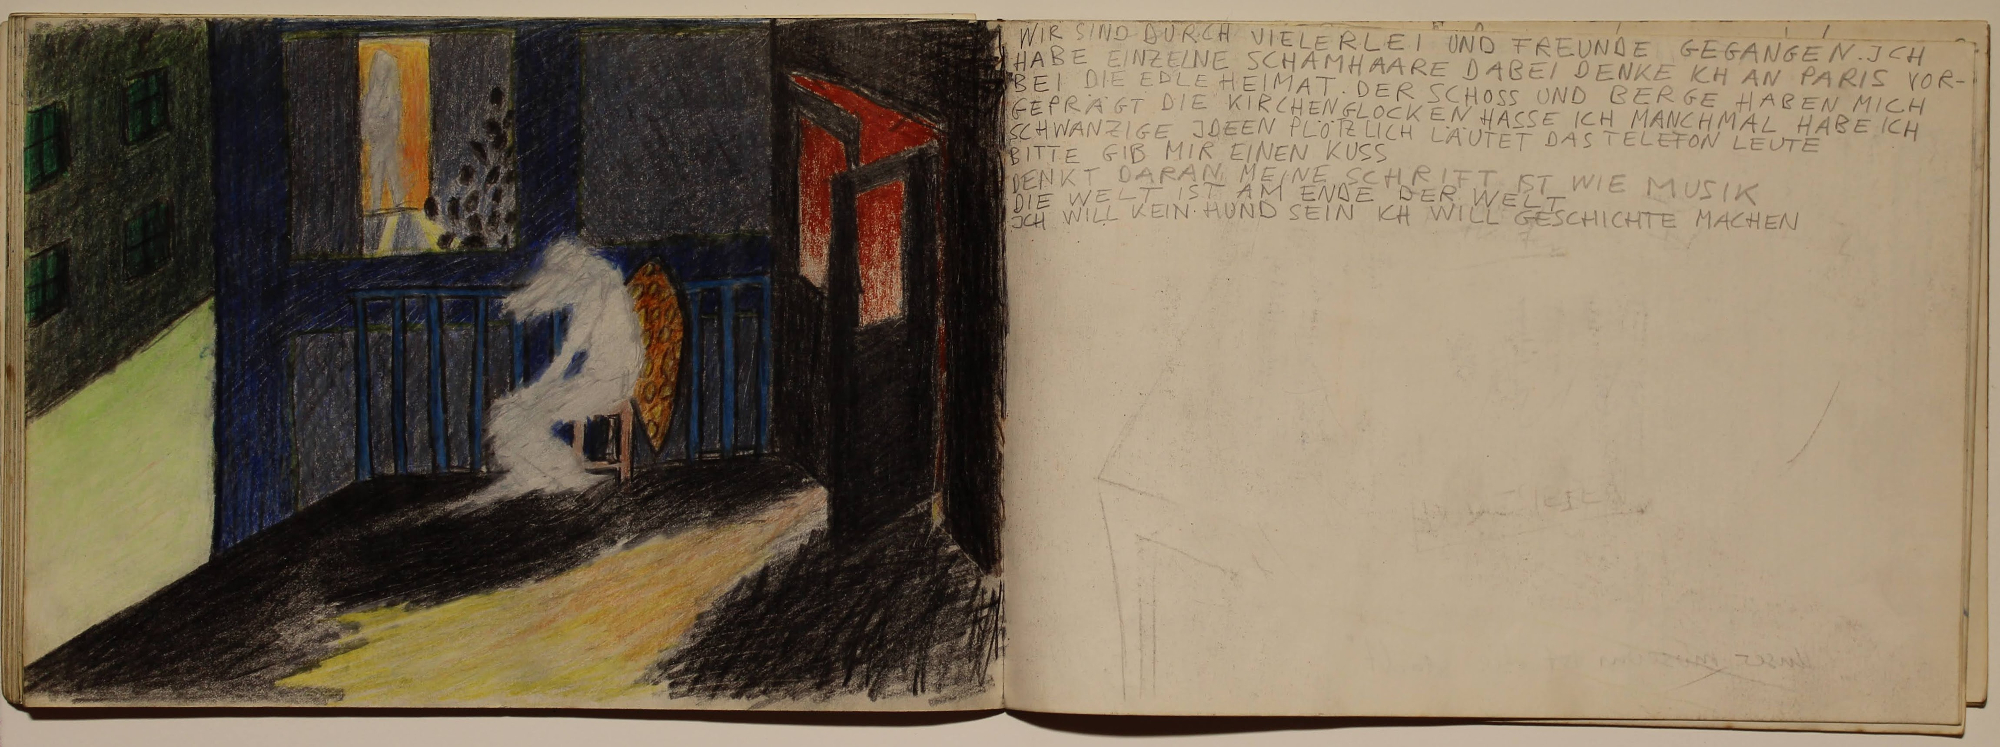 WIR SIND DURCH VIELERLEI UND FREUNDE GEGANGEN. ICH
HABE EINZELNE SCHAMHAARE DABEI DENKE ICH AN PARIS VOR-
BEI DIE EDLE HEIMAT. DER SCHOSS UND BERGE HABEN MICH
GEPRÄGT DIE KIRCHENGLOCKEN HASSE ICH MANCHMAL HABE ICH
SCHWANZIGE IDEEN PLÖTZLICH LÄUTET DAS TELEFON LEUTE
BITTE GIB MIR EINEN KUSS
DENKT DARAN, MEINE SCHRIFT IST WIE MUSIK
DIE WELT IST AM ENDE DER WELT
ICH WILL KEIN HUND SEIN ICH WILL GESCHICHTE MACHEN